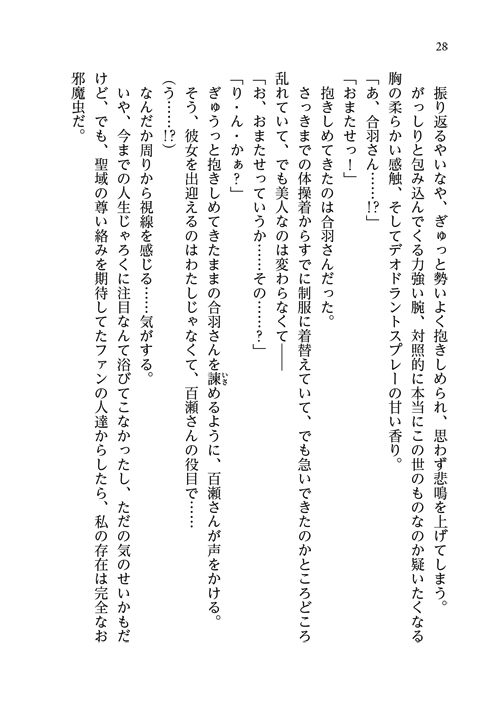 28
振り返るやいなや、ぎゅっと勢いよく抱きしめられ、思わず悲鳴を上げてしまう。
がっしりと包み込んでくる力強い腕、対照的に本当にこの世のものなのか疑いたくなる
胸の柔らかい感触、そしてデオドラントスプレーの甘い香り。
「あ、合羽さん……!?」
「おまたせっ！」
抱きしめてきたのは合羽さんだった。
さっきまでの体操着からすでに制服に着替えていて、でも急いできたのかところどころ
乱れていて、でも美人なのは変わらなくて――
「お、おまたせっていうか……その……？」
「り・ん・かぁ？」
ぎゅうっと抱きしめてきたままの合羽さんを諫めるように、百瀬さんが声をかける。
いさ
そう、彼女を出迎えるのはわたしじゃなくて、百瀬さんの役目で……
(う……!?)
なんだか周りから視線を感じる……気がする。
いや、今までの人生じゃろくに注目なんて浴びてこなかったし、ただの気のせいかもだ
けど、でも、聖域の尊い絡みを期待してたファンの人達からしたら、私の存在は完全なお
邪魔虫だ。